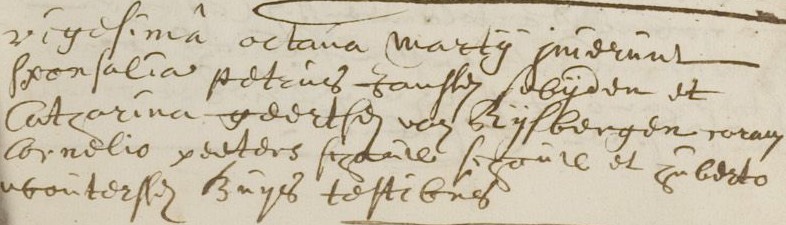 vigesimâ octava Martij inierunt
sponsalia Petrus Janssen et
Catharina Geertsen van Rijsbergen coram
Cornelio Peeters et Huberto
Wouterssen Buijs testibus